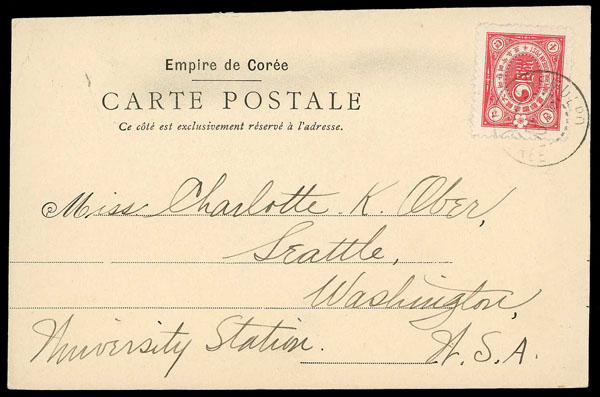 Empire de Corée
CARTE POSTALE
Ce côté est exclusivement réservé à l'adresse.
Miss Charlotte K. Ober,
Seattle,
Washington,
University Station.
W. S. A.